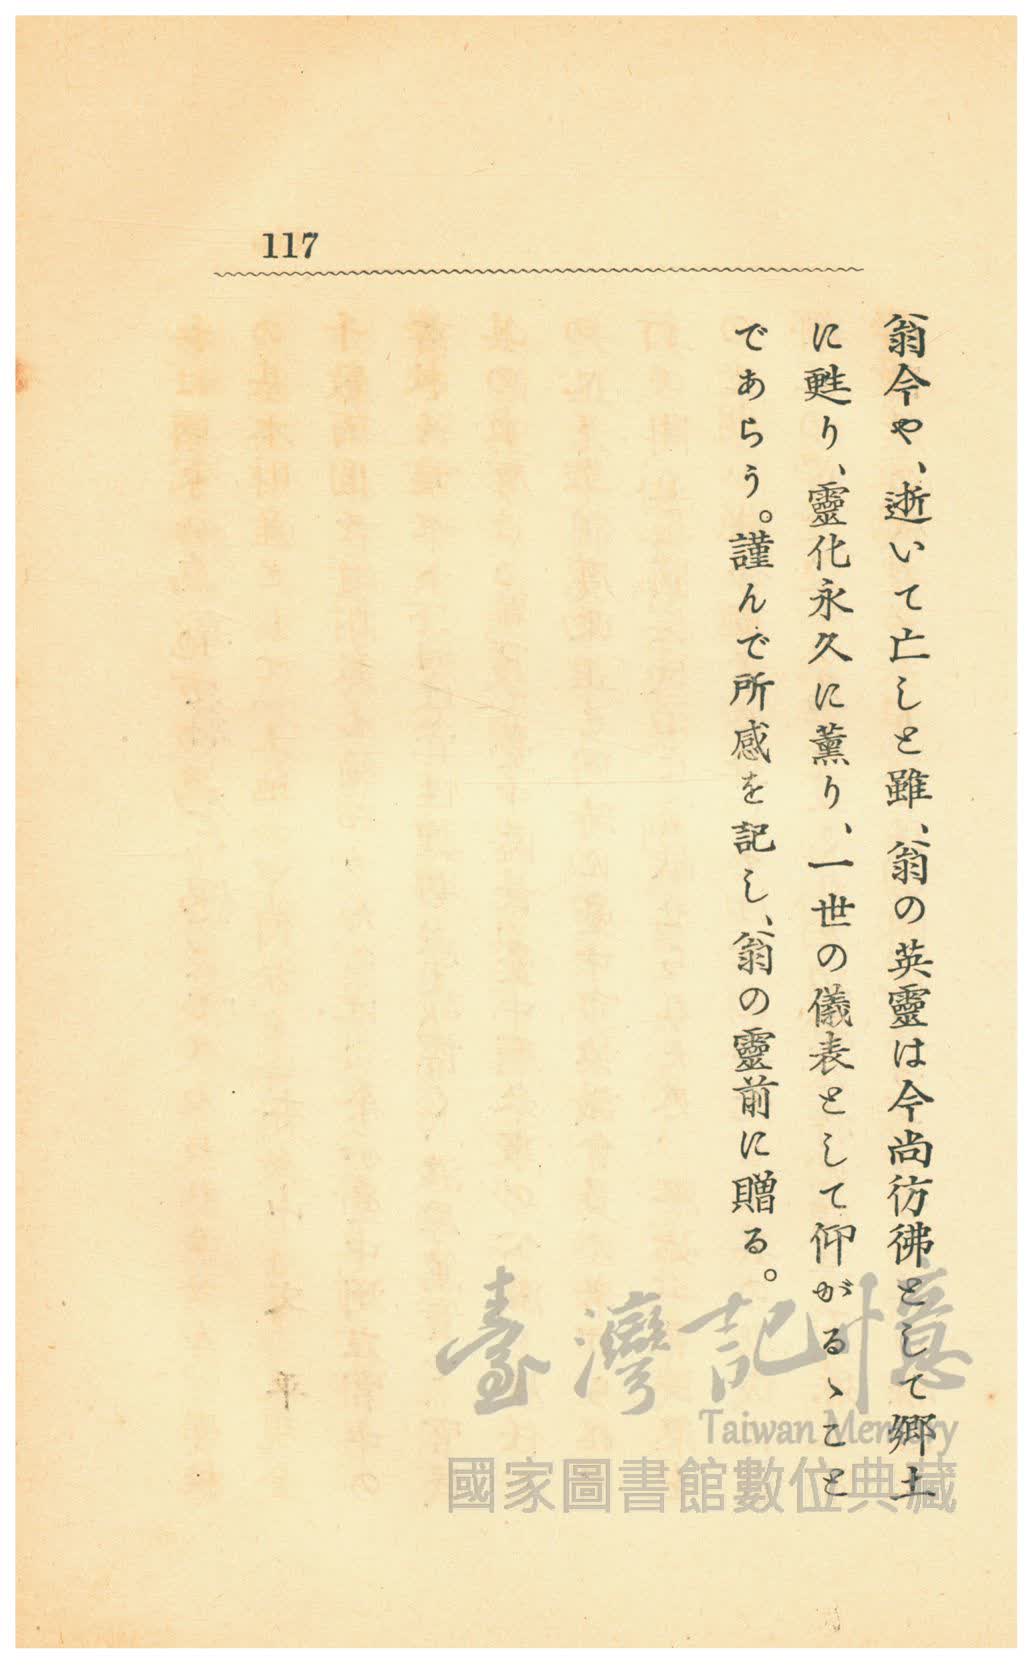 117
翁今や、逝いて亡しと雖、翁の英靈は今尚彷彿として郷土
に甦り、靈化永久に薫り、一世の儀表として仰がるゝこと
であらう。謹んで所感を記し、翁の靈前に贈る。
臺灣記憶
Taiwan Memory
國家圖書館數位典藏